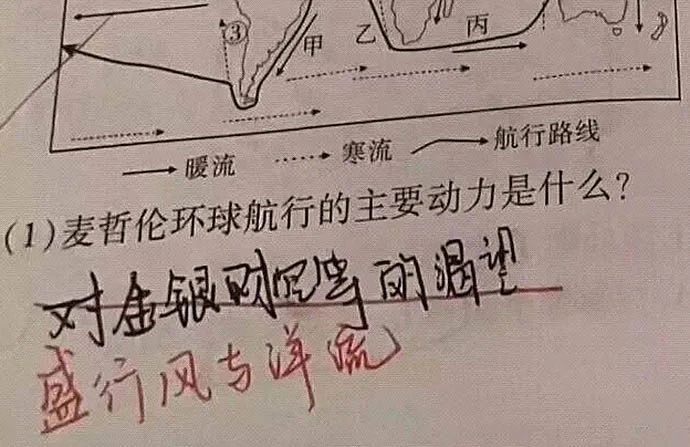 ③ 甲 乙 丙
暖流 寒流 航行路线
(1)麦哲伦环球航行的主要动力是什么?
对金银财宝的渴望
盛行风与洋流